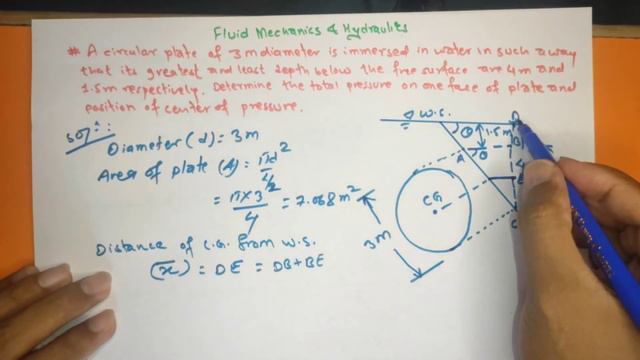 Fluid Mechanics & Hydraulics
* A circular plate of 3 m diameter is immersed in water in such a way
that its greatest and least depth below the free surface are 4m and
1.5m respectively. Determine the total pressure on one face of plate and
position of center of pressure.
Solⁿ::
Diameter (d) = 3m
Area of plate (A) = πd²/4
= π×3²/4 = 7.068 m²
Distance of C.G. from W.S.
(x̄) = DE = DB+BE
W.S.
D
θ
1.5m
B
A
θ
4
E
C
CG
3m